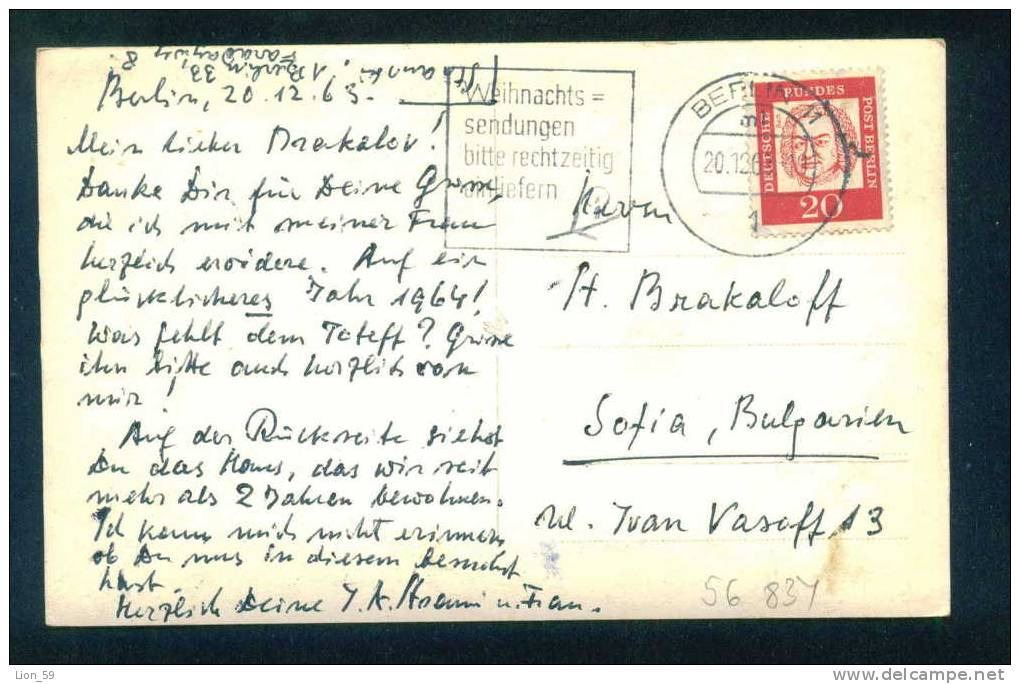 1 Berlin 33
8.
Berlin, 20.12.63.
Mein lieber Brakalov!
Danke Dir für Deine Grüsse,
die ich mit meiner Frau
herzlich erwidere. Auf ein
glücklicheres Jahr 1964!
Was fehlt dem Toteff? Grüsse
ihn bitte auch herzlich von
mir!
Auf der Rückseite siehst
Du das Haus, das wir seit
mehr als 2 Jahren bewohnen.
Ich kann mich nicht erinnern
ob Du uns in diesem besucht
hast.
Herzlich Deine u. Frau.
Weihnachts=
sendungen
bitte rechtzeitig
einliefern
BERLIN 11
20.12.63
DEUTSCHE BUNDESPOST BERLIN
20
Herrn
H. Brakaloff
Sofia, Bulgarien
ul. Ivan Vasoff 13
56 834
Lion_59
www.delcampe.net